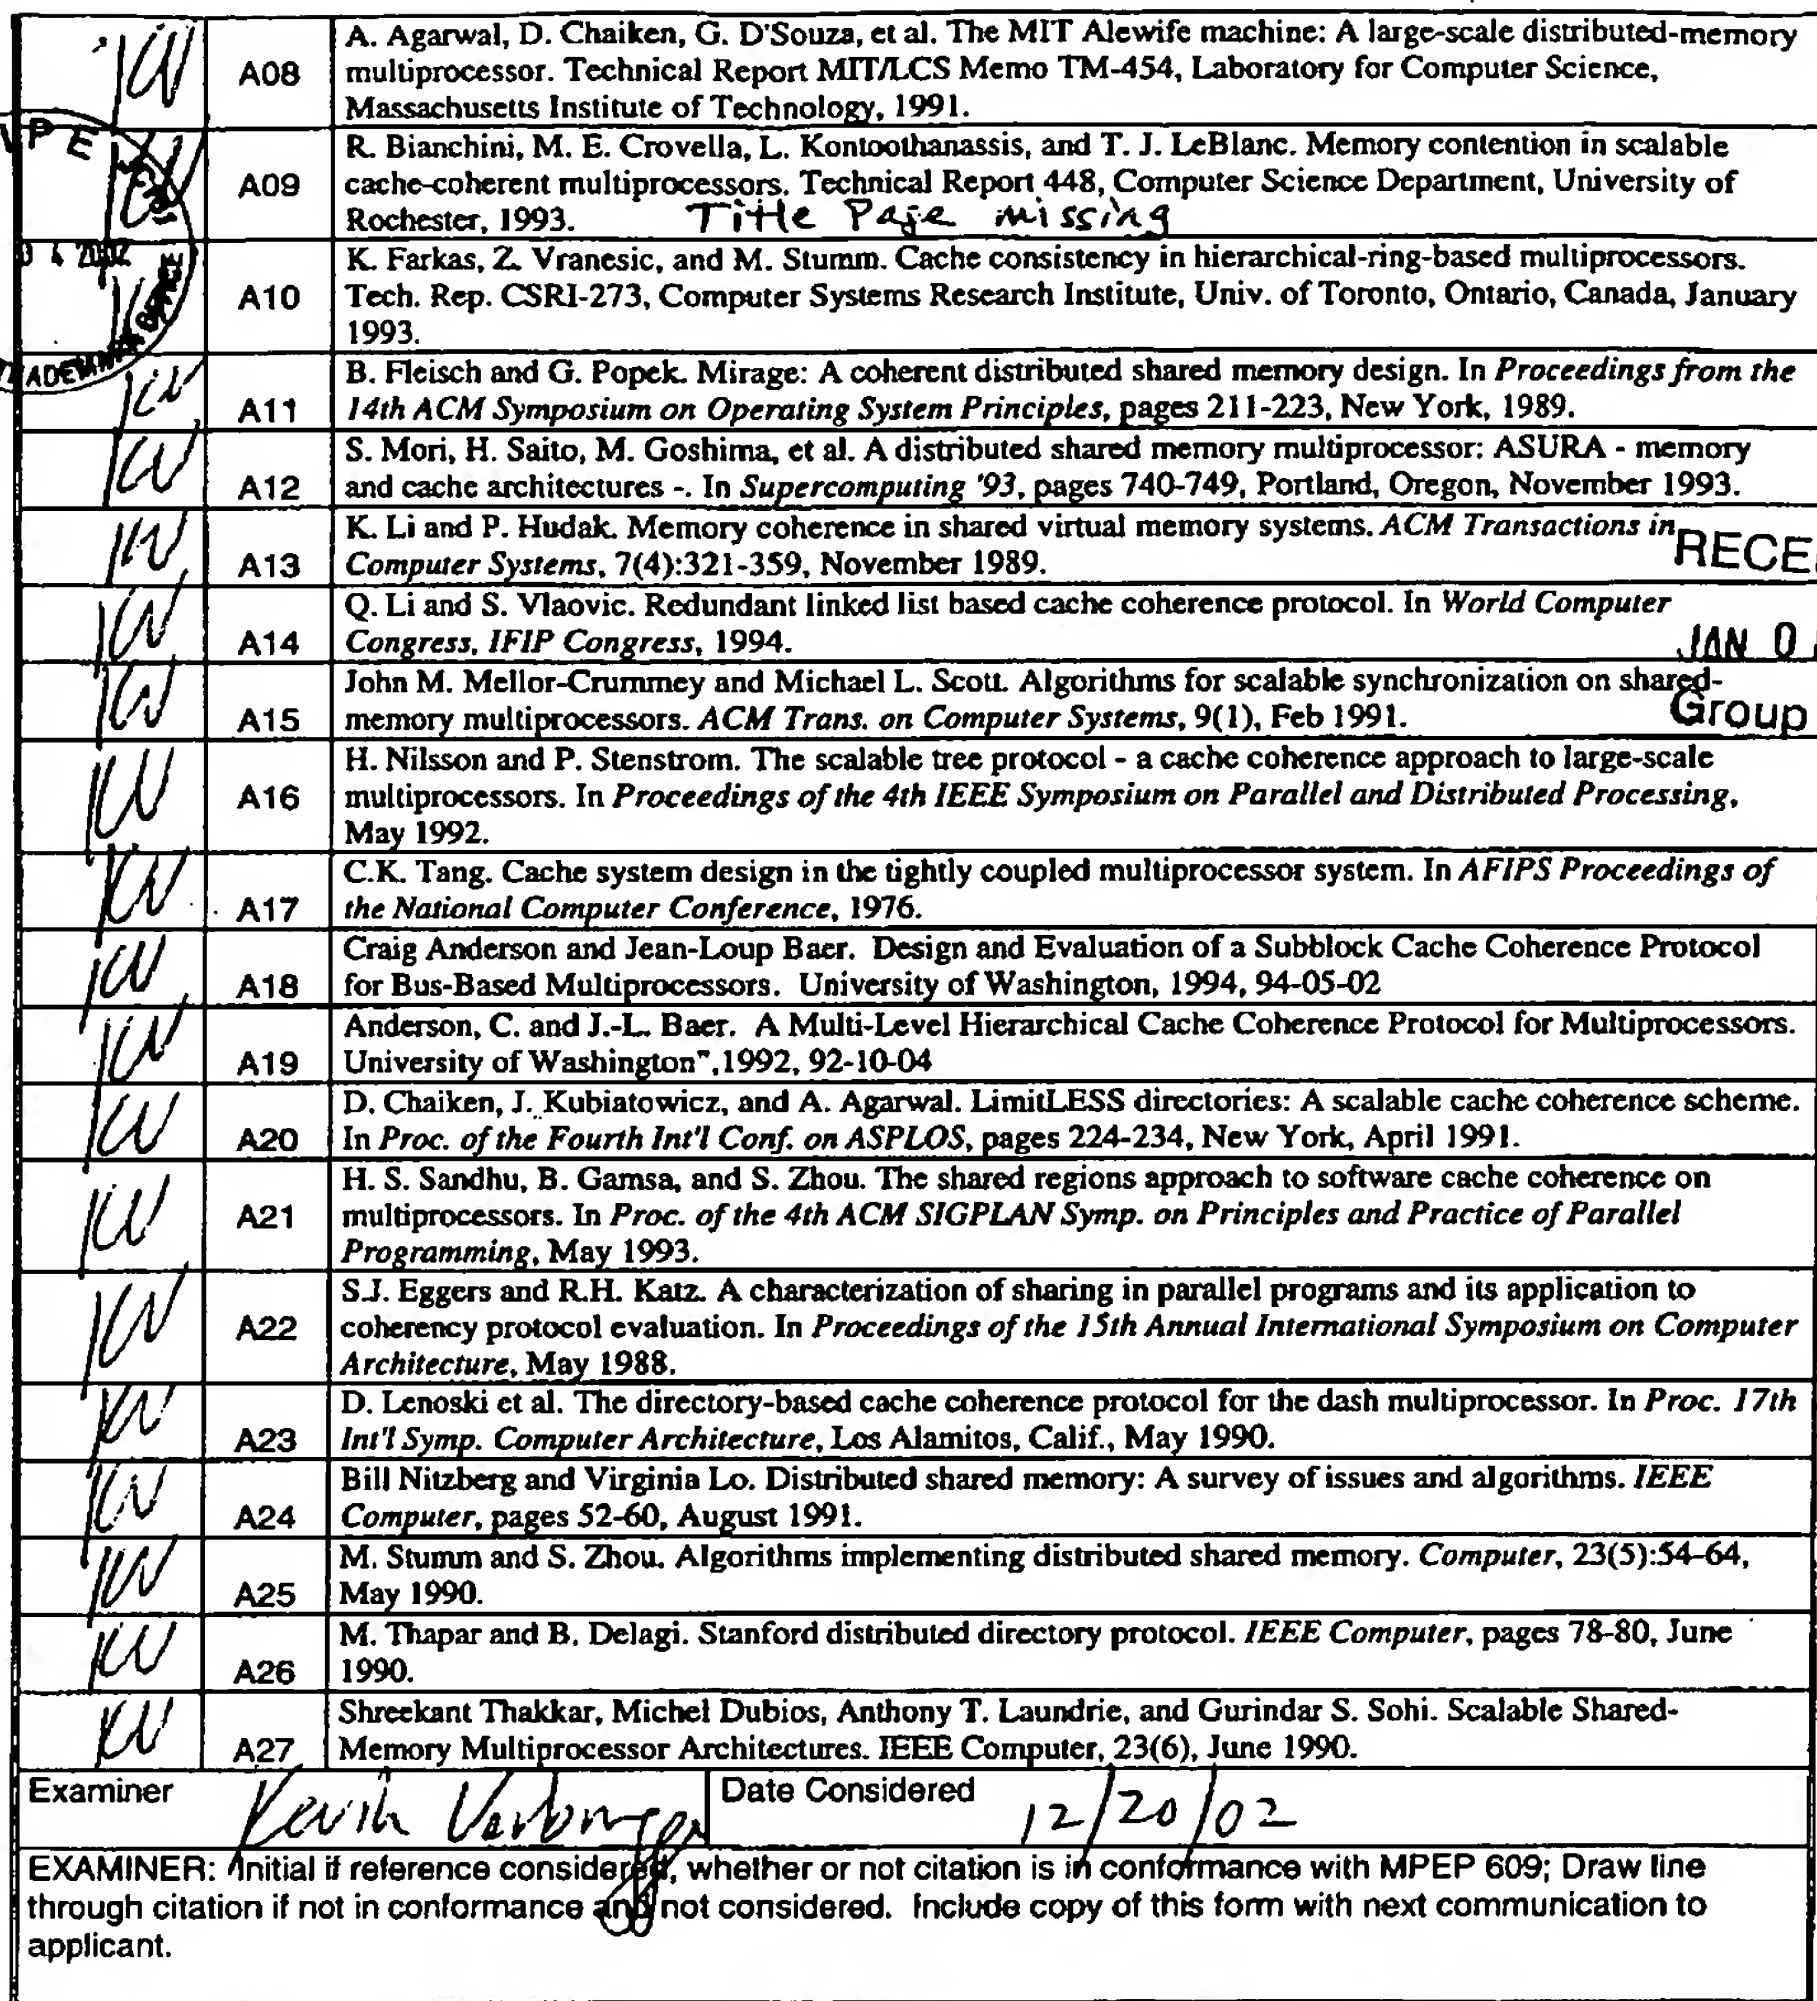 A08 A. Agarwal, D. Chaiken, G. D'Souza, et al. The MIT Alewife machine: A large-scale distributed-memory
multiprocessor. Technical Report MIT/LCS Memo TM-454, Laboratory for Computer Science,
Massachusetts Institute of Technology, 1991.
A09 R. Bianchini, M. E. Crovella, L. Kontoothanassis, and T. J. LeBlanc. Memory contention in scalable
cache-coherent multiprocessors. Technical Report 448, Computer Science Department, University of
Rochester, 1993. Title Page missing
A10 K. Farkas, Z. Vranesic, and M. Stumm. Cache consistency in hierarchical-ring-based multiprocessors.
Tech. Rep. CSRI-273, Computer Systems Research Institute, Univ. of Toronto, Ontario, Canada, January
1993.
A11 B. Fleisch and G. Popek. Mirage: A coherent distributed shared memory design. In Proceedings from the
14th ACM Symposium on Operating System Principles, pages 211-223, New York, 1989.
A12 S. Mori, H. Saito, M. Goshima, et al. A distributed shared memory multiprocessor: ASURA - memory
and cache architectures -. In Supercomputing '93, pages 740-749, Portland, Oregon, November 1993.
A13 K. Li and P. Hudak. Memory coherence in shared virtual memory systems. ACM Transactions in
Computer Systems, 7(4):321-359, November 1989.
A14 Q. Li and S. Vlaovic. Redundant linked list based cache coherence protocol. In World Computer
Congress, IFIP Congress, 1994.
JAN 0
A15 John M. Mellor-Crummey and Michael L. Scott. Algorithms for scalable synchronization on shared-
memory multiprocessors. ACM Trans. on Computer Systems, 9(1), Feb 1991.
Group
A16 H. Nilsson and P. Stenstrom. The scalable tree protocol - a cache coherence approach to large-scale
multiprocessors. In Proceedings of the 4th IEEE Symposium on Parallel and Distributed Processing,
May 1992.
A17 C.K. Tang. Cache system design in the tightly coupled multiprocessor system. In AFIPS Proceedings of
the National Computer Conference, 1976.
A18 Craig Anderson and Jean-Loup Baer. Design and Evaluation of a Subblock Cache Coherence Protocol
for Bus-Based Multiprocessors. University of Washington, 1994, 94-05-02
A19 Anderson, C. and J.-L. Baer. A Multi-Level Hierarchical Cache Coherence Protocol for Multiprocessors.
University of Washington",1992, 92-10-04
A20 D. Chaiken, J. Kubiatowicz, and A. Agarwal. LimitLESS directories: A scalable cache coherence scheme.
In Proc. of the Fourth Int'l Conf. on ASPLOS, pages 224-234, New York, April 1991.
A21 H. S. Sandhu, B. Gamsa, and S. Zhou. The shared regions approach to software cache coherence on
multiprocessors. In Proc. of the 4th ACM SIGPLAN Symp. on Principles and Practice of Parallel
Programming, May 1993.
A22 S.J. Eggers and R.H. Katz. A characterization of sharing in parallel programs and its application to
coherency protocol evaluation. In Proceedings of the 15th Annual International Symposium on Computer
Architecture, May 1988.
A23 D. Lenoski et al. The directory-based cache coherence protocol for the dash multiprocessor. In Proc. 17th
Int'l Symp. Computer Architecture, Los Alamitos, Calif., May 1990.
A24 Bill Nitzberg and Virginia Lo. Distributed shared memory: A survey of issues and algorithms. IEEE
Computer, pages 52-60, August 1991.
A25 M. Stumm and S. Zhou. Algorithms implementing distributed shared memory. Computer, 23(5):54-64,
May 1990.
A26 M. Thapar and B. Delagi. Stanford distributed directory protocol. IEEE Computer, pages 78-80, June
1990.
A27 Shreekant Thakkar, Michel Dubios, Anthony T. Laundrie, and Gurindar S. Sohi. Scalable Shared-
Memory Multiprocessor Architectures. IEEE Computer, 23(6), June 1990.
Examiner Kevin Date Considered 12/20/02
EXAMINER: Initial if reference considered, whether or not citation is in conformance with MPEP 609; Draw line
through citation if not in conformance and not considered. Include copy of this form with next communication to
applicant.